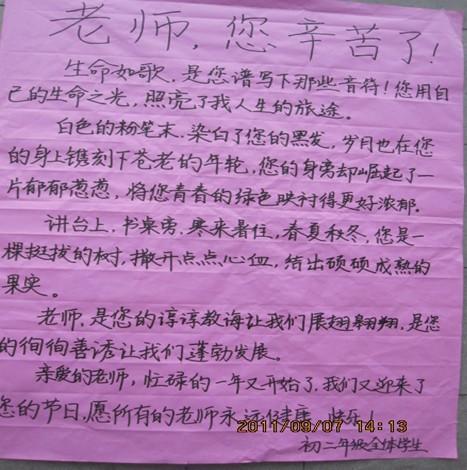 老师，您辛苦了！
生命如歌，是您谱写下那些音符！您用自
己的生命之光，照亮了我人生的旅途。
白色的粉笔末，染白了您的黑发，岁月也在您
的身上镌刻下苍老的年轮，您的身旁却崛起了一
片郁郁葱葱，将您青春的绿色映衬得更好浓郁.
讲台上，书桌旁，寒来暑往，春夏秋冬，您是一
棵挺拔的树，撒开点点心血，结出硕硕成熟的
果实。
老师，是您的谆谆教诲让我们展翅翱翔，是您
的徇徇善诱让我们蓬勃发展。
亲爱的老师，忙碌的一年又开始了，我们又迎来了
您的节日，愿所有的老师永远健康，快乐！
2011/09/07 14:13
初二年级全体学生